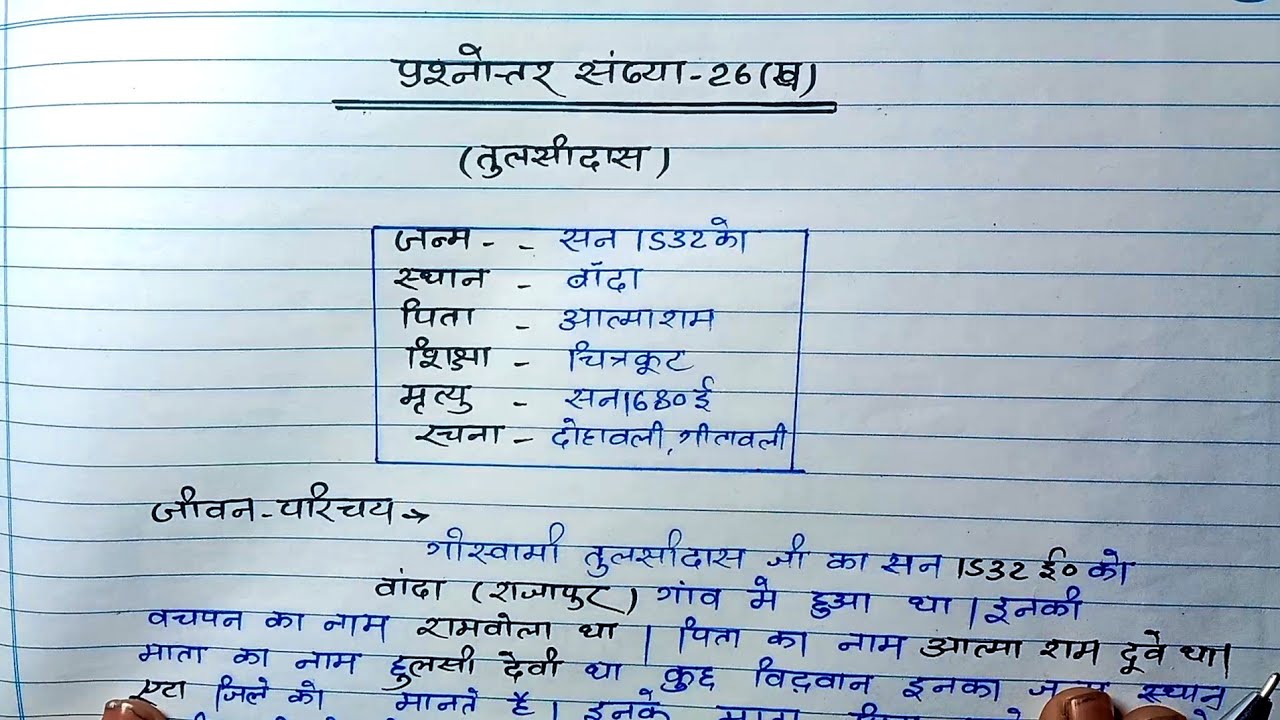 प्रश्नोत्तर संख्या-26(ख)
(तुलसीदास)
जन्म - - सन 1532 को
स्थान - बाँदा
पिता - आत्माराम
शिक्षा - चित्रकूट
मृत्यु - सन 1680 ई
रचना - दोहावली, गीतावली
जीवन-परिचय →
गोस्वामी तुलसीदास जी का सन 1532 ई० को
वांदा (राजापुर) गांव मे हुआ था। इनकी
वचपन का नाम रामवोला था। पिता का नाम आत्मा राम दूवे था।
माता का नाम हुलसी देवी था कुछ विद्वान इनका जन्म स्थान
एटा जिले को मानते है। इनके माता